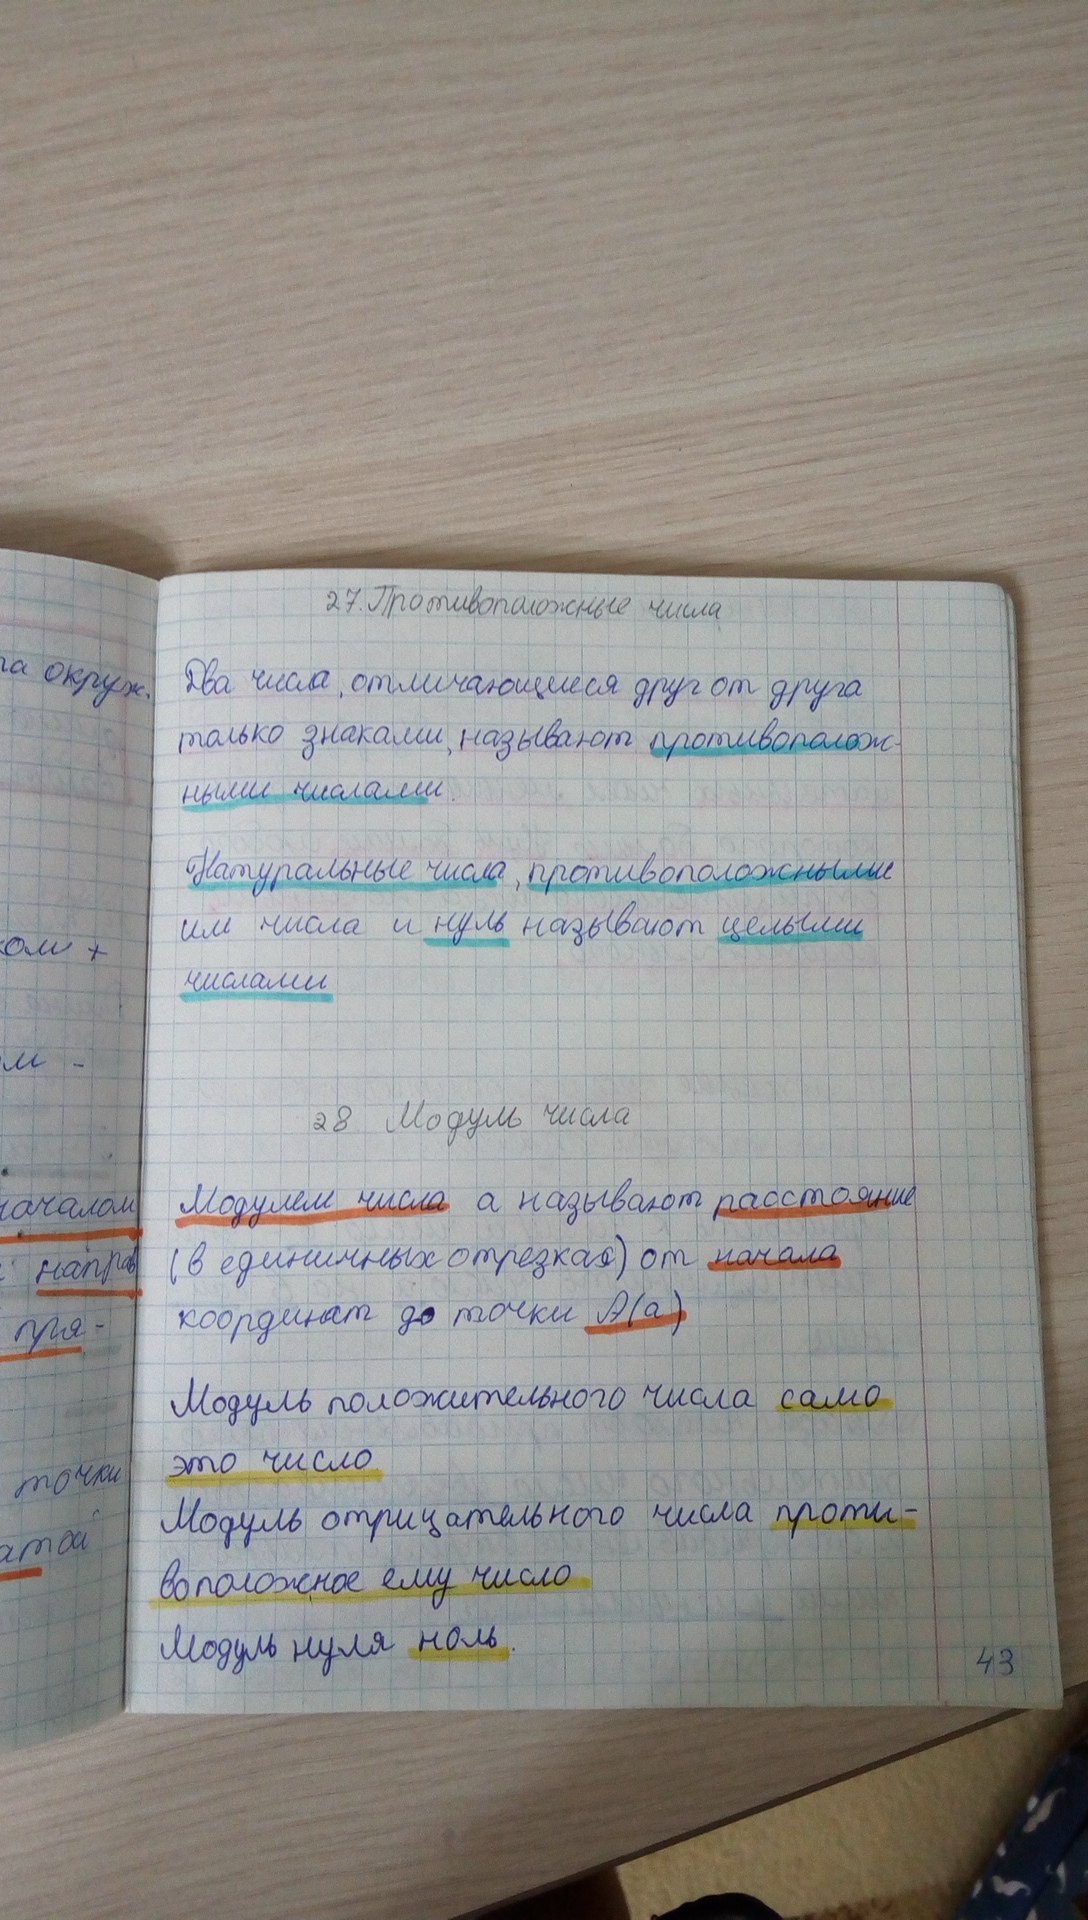 27. Противоположные числа
Два числа, отличающиеся друг от друга
только знаками, называют противополож-
ными числами.
Натуральные числа, противоположными
им числа и нуль называют целыми
числами
28 Модуль числа
Модулем числа а называют расстояние
(в единичных отрезках) от начала
координат до точки А(а)
Модуль положительного числа само
это число
Модуль отрицательного числа проти-
воположное ему число
Модуль нуля ноль.
43
окруж.
+
-
началом
направ
пря-
точки